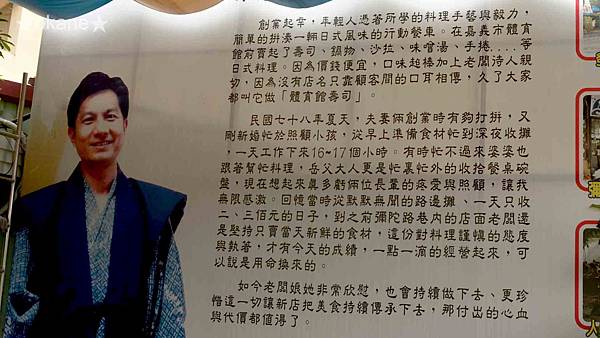 ★skane☆
創業起幸，年輕人憑著所學的料理手藝與毅力，
簡單的拼湊一輛日式風味的行動餐車。在嘉義市體育
館前賣起了壽司、鍋物、沙拉、味噌湯、手捲....等
日式料理。因為價錢便宜，口味超棒加上老闆待人親
切，因為沒有店名只靠顧客間的口耳相傳，久了大家
都叫它做「體育館壽司」。
民國七十八年夏天，夫妻倆創業時有夠打拼，又
剛新婚忙於照顧小孩，從早上準備食材忙到深夜收攤
，一天工作下來16~17個小時。有時忙不過來婆婆也
跟著幫忙料理，岳父大人更是忙裏忙外的收拾餐桌碗
盤，現在想起來真多虧倆位長輩的疼愛與照顧，讓我
無限感激。回憶當時從默默無聞的路邊攤、一天只收
二、三佰元的日子，到之前彌陀路巷內的店面老闆還
是堅持只賣當天新鮮的食材，這份對料理謹慎的態度
與執著，才有今天的成績，一點一滴的經營起來，可
以說是用命換來的。
如今老闆娘她非常欣慰，也會持續做下去、更珍
惜這一切讓新店把美食持續傳承下去，那付出的心血
與代價都值得了。
彌
人